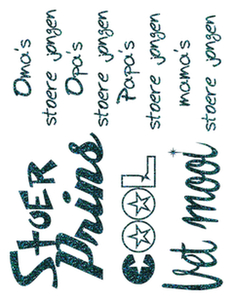 STOER
Prins
COOL
Vet mooi
Oma's
stoere jongen
Opa's
stoere jongen
Papa's
stoere jongen
mama's
stoere jongen